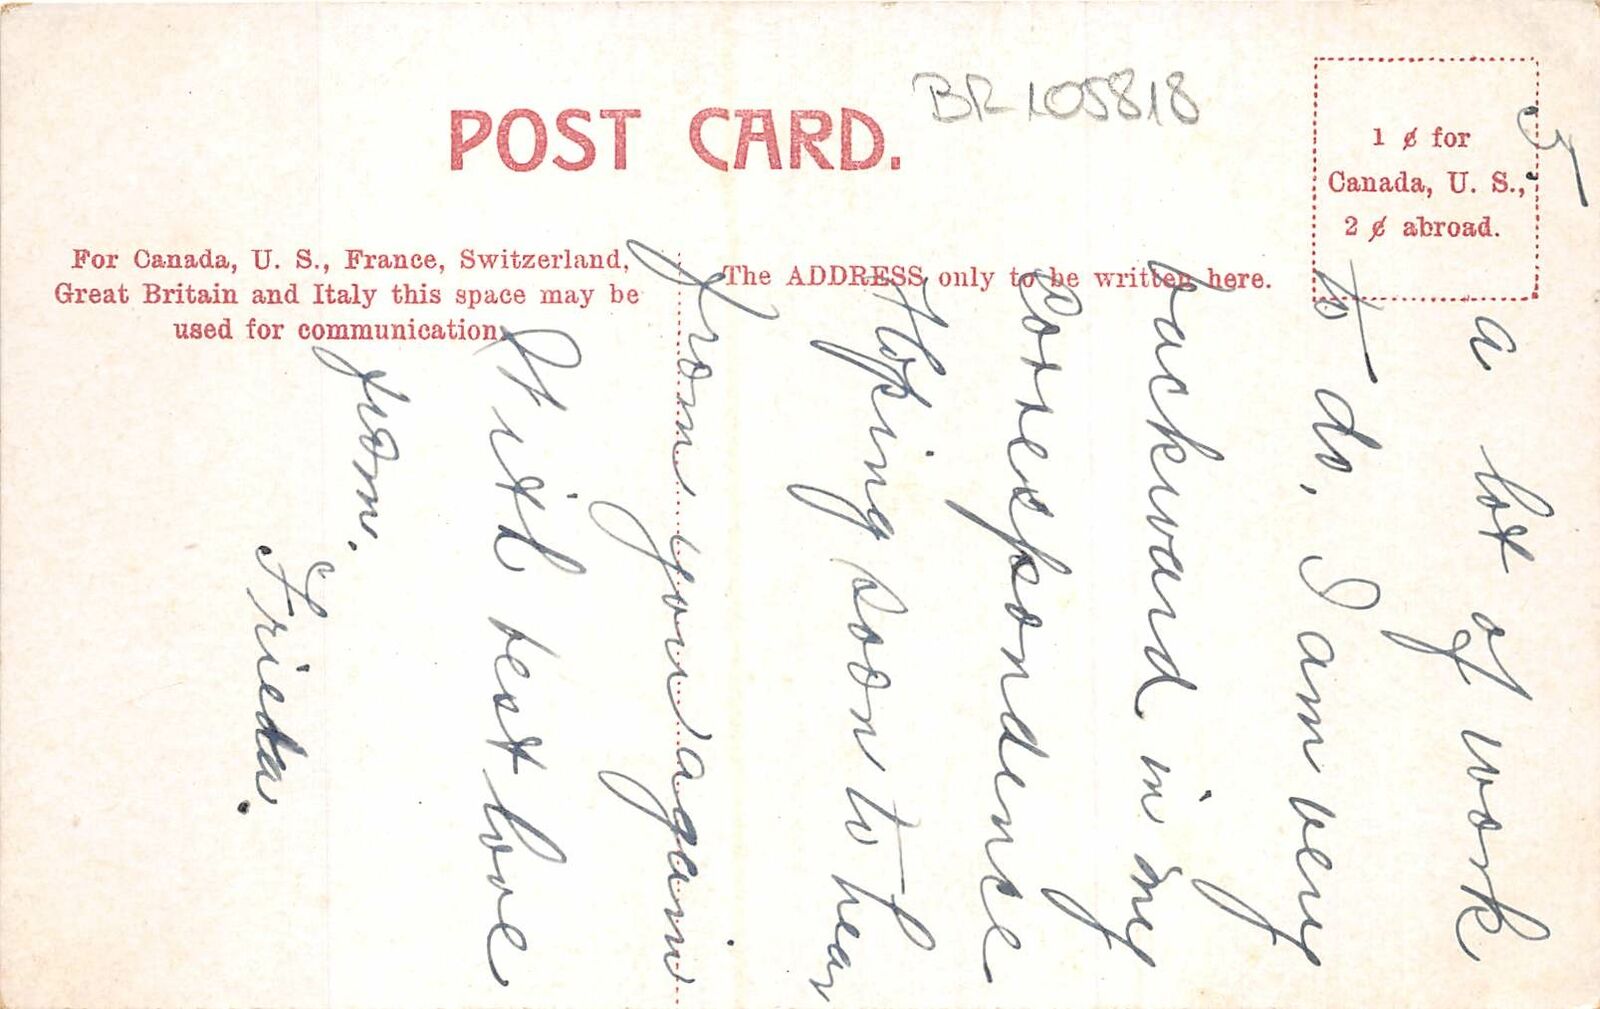 POST CARD.
BR105818
For Canada, U. S., France, Switzerland,
Great Britain and Italy this space may be
used for communication.
The ADDRESS only to be written here.
1 ¢ for
Canada, U. S.,
2 ¢ abroad.
5
a lot of work
to do. I am very
backward in my
correspondence
Hoping soon to hear
from you again
With best love
from.
Frieda.